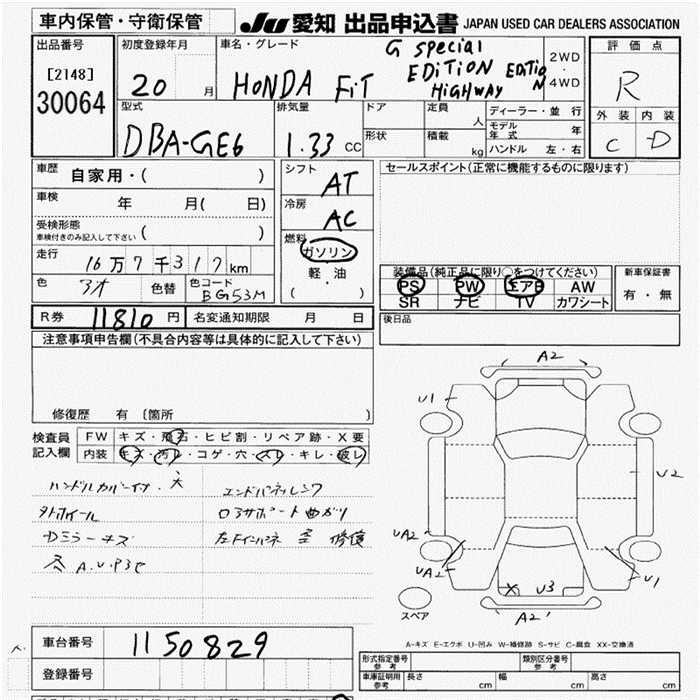 車内保管・守衛保管
JU 愛知 出品申込書 JAPAN USED CAR DEALERS ASSOCIATION
出品番号
[2148]
30064
初度登録年月
20 月
車名・グレード
HONDA FiT
G Special
EDiTiON EDiTiON
HiGHWAY
2WD
・
4WD
評価点
R
外装 内装
C D
型式
DBA-GE6
排気量
1.33 CC
ドア
形状
定員
人
積載
kg
ディーラー・並行
モデル年式 年
ハンドル 左・右
車歴
自家用・( )
車検
年 月( 日)
受検形態
車検付きのみ記入して下さい ( )
走行
16万7千317km
色
アオ
色替
色コード
BG53M
シフト
AT
冷房
AC
燃料
ガソリン
軽・油
( )
セールスポイント(正常に機能するものに限ります)
装備品(純正品に限り○をつけてください)
PS PW エアB AW
SR ナビ TV カワシート
新車保証書
有・無
R券 11810 円
名変通知期限 月 日
後日品
注意事項申告欄(不具合内容等は具体的に記入して下さい)
修復歴 有 〔箇所 〕
検査員
記入欄
FW キズ・飛石・ヒビ割・リペア跡・X要
内装 キズ・汚レ・コゲ・穴・スレ・キレ・破レ
ハンドルカバーイタ・大
エンドパネルシワ
外ホイール
コアサポート曲ガリ
Dミラーキズ
左Fインパネ 歪 修復
A2
U1
U2
UA2
UA2
U1
U3
A2
スペア
A-キズ E-エクボ U-凹み W-補修跡 S-サビ C-腐食 XX-交換済
車台番号
1150829
登録番号
形式指定番号
参考
類別区分番号
参考
車庫証明用
参考
長さ cm
幅 cm
高さ cm